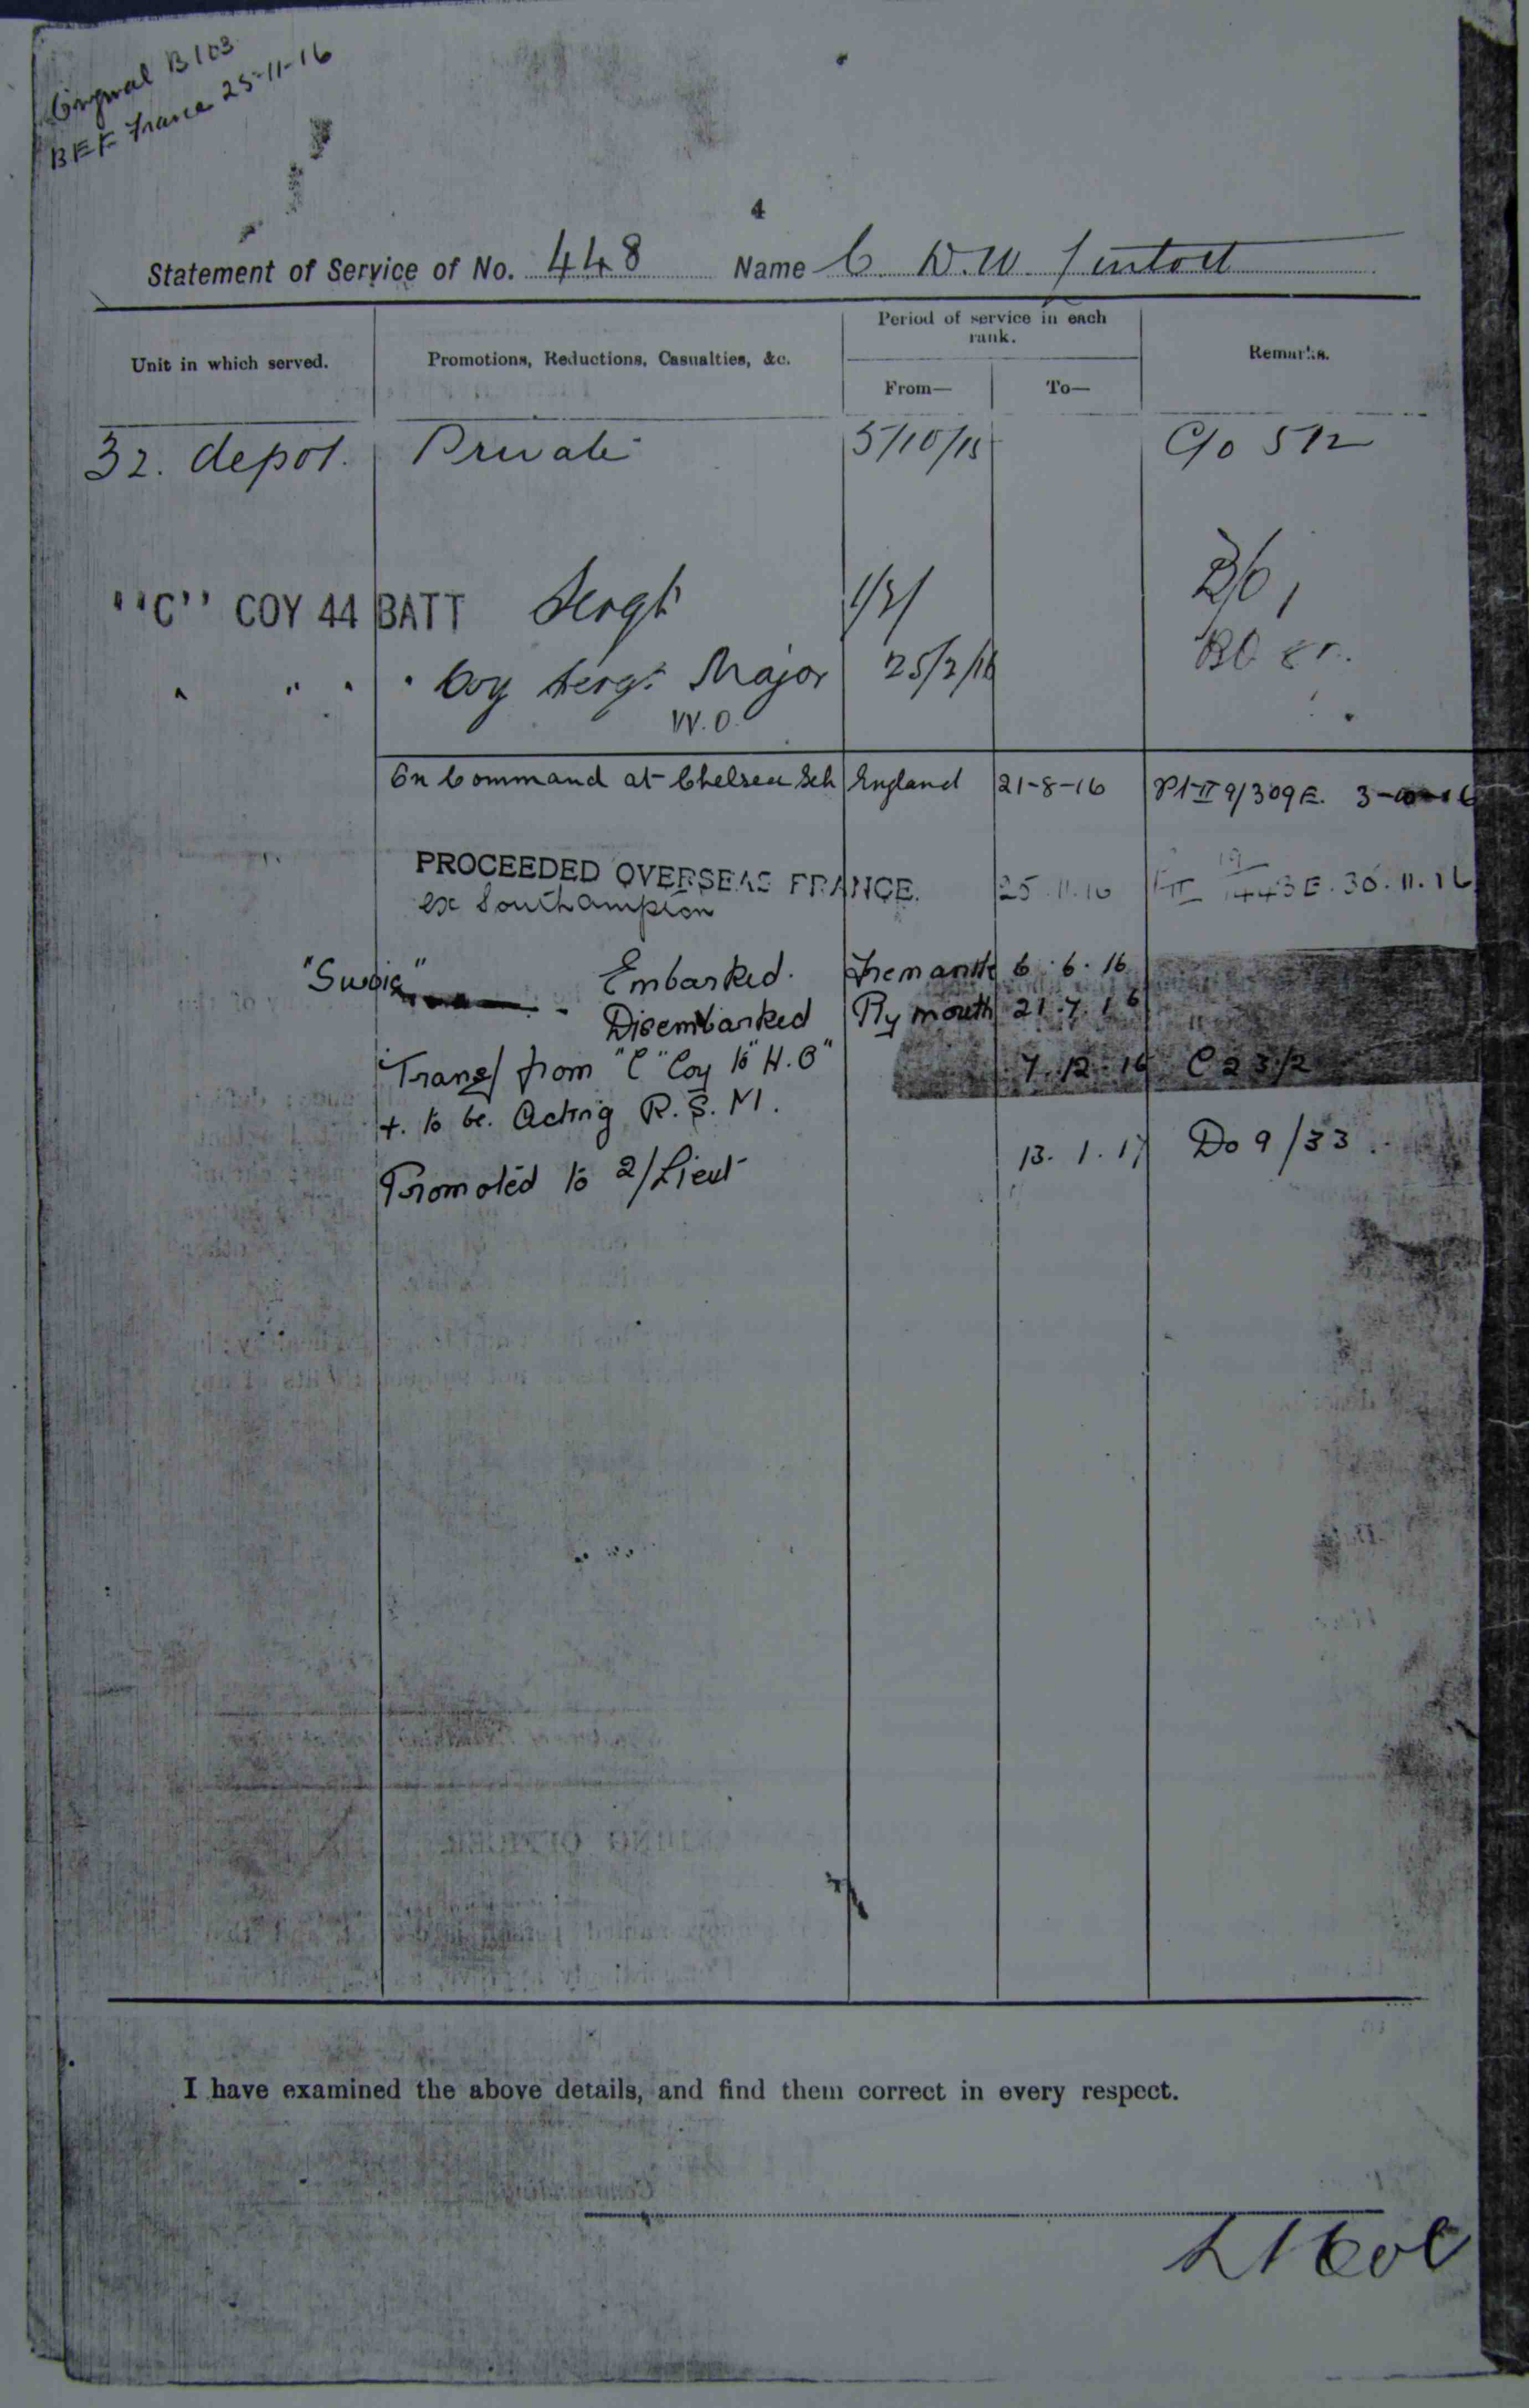 Original B103
BEF France 25-11-16
4
Statement of Service of No. 448 Name C. D.W.
Unit in which served. Promotions, Reductions, Casualties, &c. Period of service in each rank. Remarks.
From— To—
32. depot. Private 5/10/15 C/o 512
"C" COY 44 BATT Sergt
" " " Coy Sergt Major 25/2/16
W.O.
On Command at Chelsea Sch England 21-8-16 Pt II 9/309E.
PROCEEDED OVERSEAS FRANCE. 25.11.16 30.11.16
ex Southampton
"Suvic" Embarked. Fremantle 6.6.16
Disembarked Plymouth 21.7.16
Transf from "C" Coy to "H.Q" 7.12.16 C 23/2
+ to be Acting R.S.M.
Promoted to 2/Lieut 13.1.17 Do 9/33
I have examined the above details, and find them correct in every respect.
Lt Col